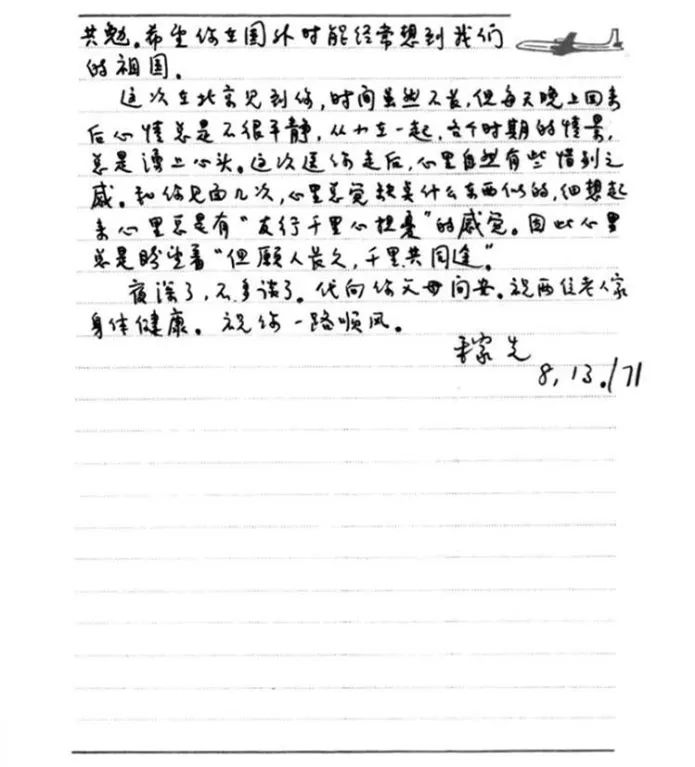 共勉。希望你在国外时能经常想到我们
的祖国。
这次在北京见到你,时间虽然不长,但每天晚上回来
后心情总是不很平静,从小在一起,各个时期的情景,
总是涌上心头。这次送你走后,心里自然有些惜别之
感。和你见面几次,心里总觉缺莫什么东西似的,细想起
来心里总是有“友行千里心担忧”的感觉。因此心里
总是盼望着“但愿人长久,千里共同途”。
夜深了,不多谈了。代向你父母问安。祝两位老人家
身体健康。祝你一路顺风。
稼先
8,13./71